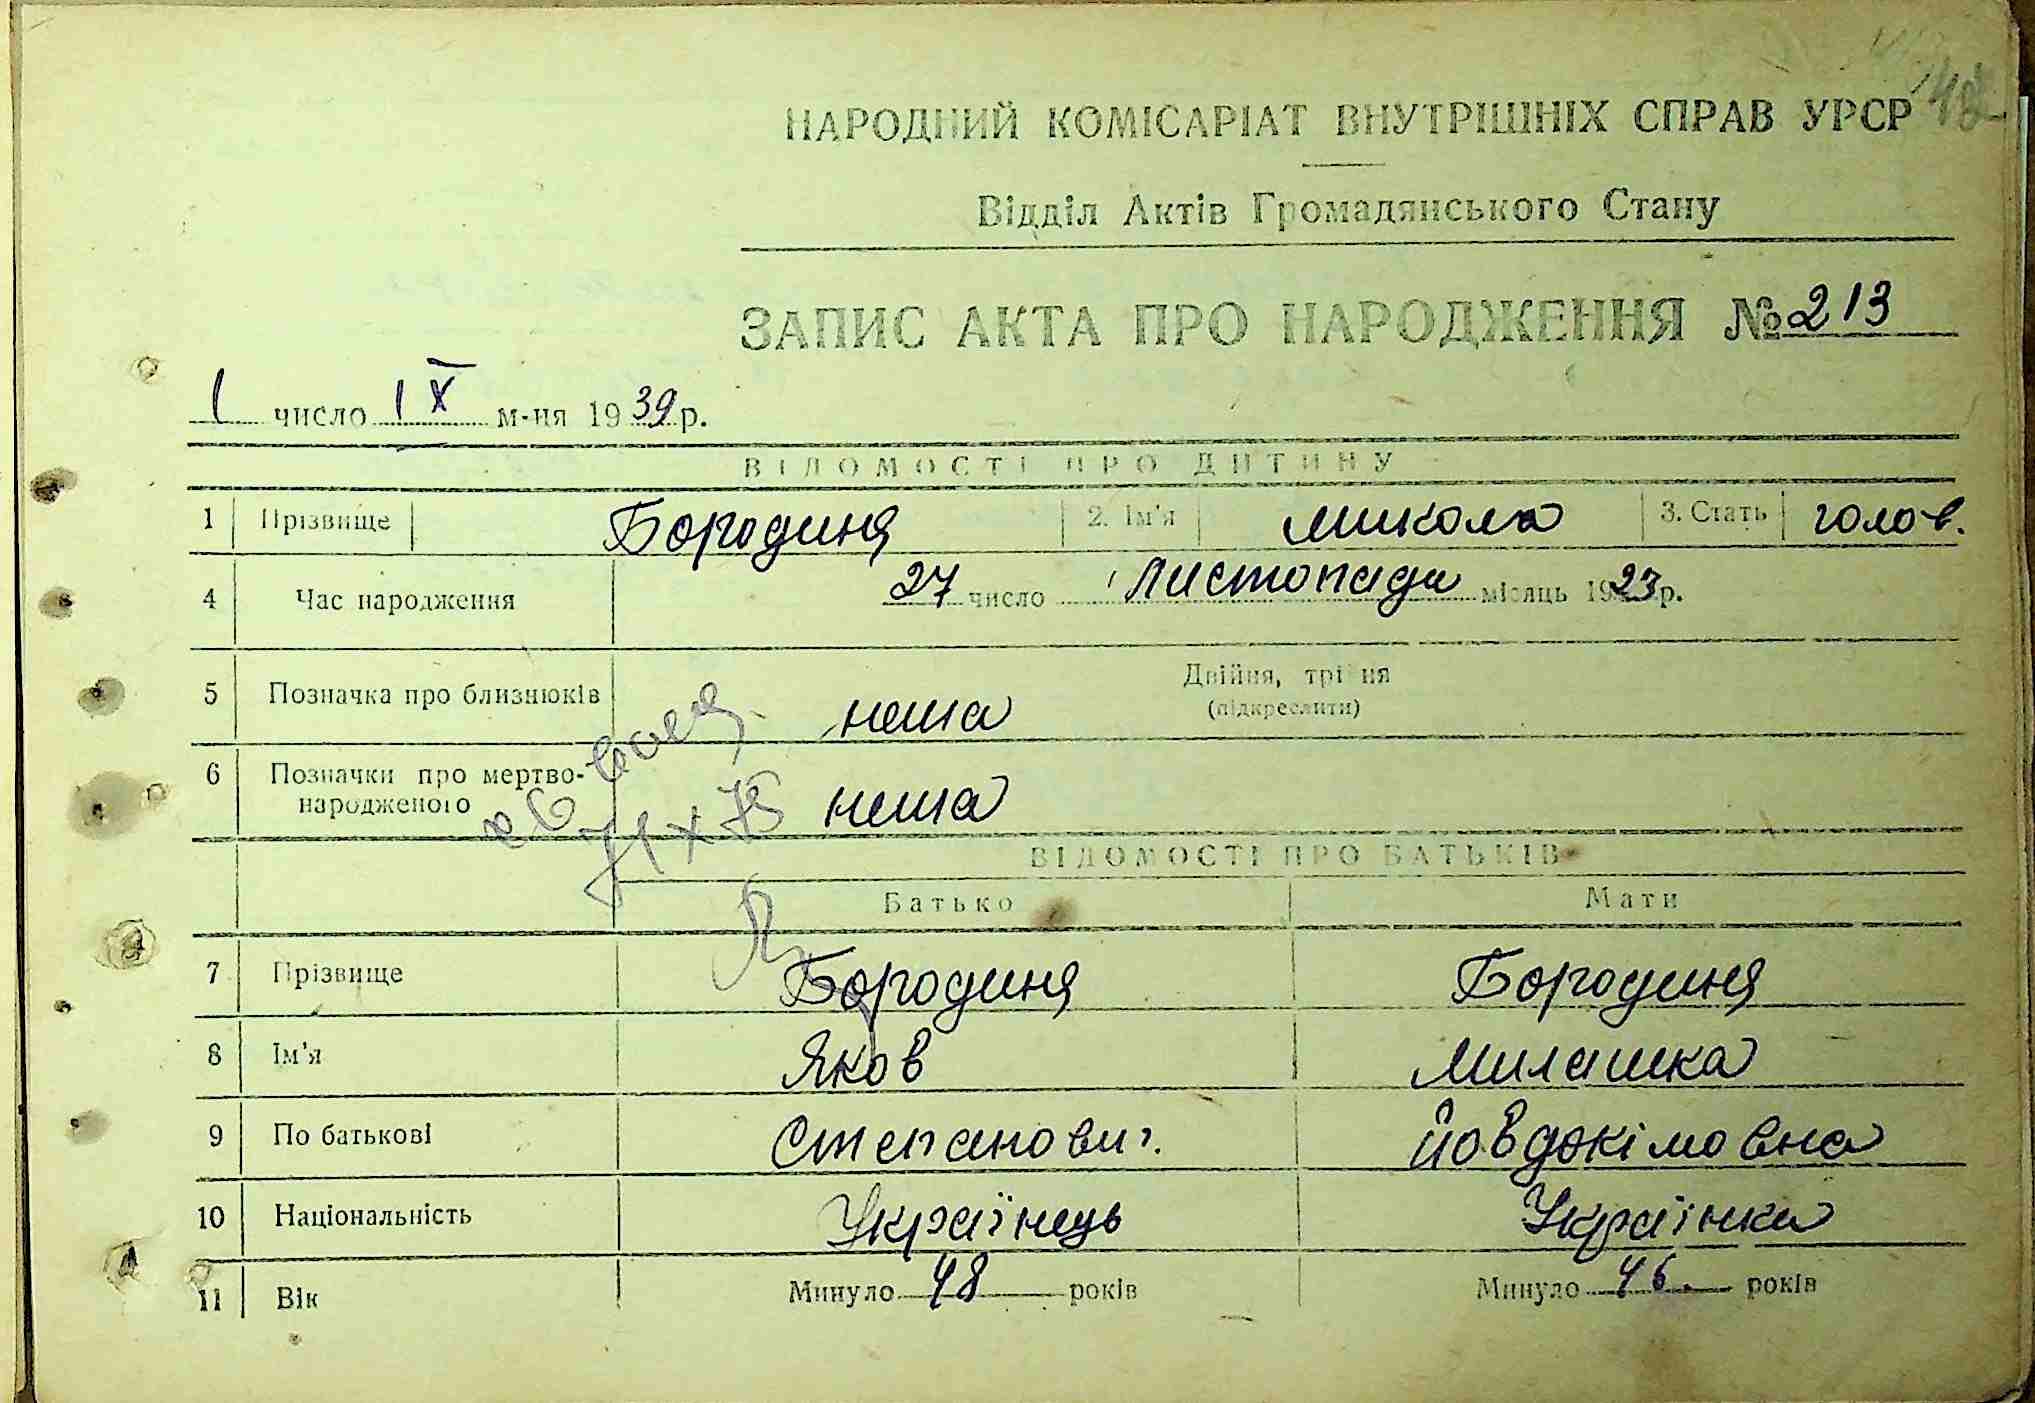 42
НАРОДНИЙ КОМІСАРІАТ ВНУТРІШНІХ СПРАВ УРСР
Відділ Актів Громадянського Стану
ЗАПИС АКТА ПРО НАРОДЖЕННЯ № 213
1 число IX м-ня 1939 р.
ВІДОМОСТІ ПРО ДИТИНУ
1 Прізвище Бородиня 2. Ім'я Микола 3. Стать голов.
4 Час народження 27 число Листопада місяць 1923 р.
5 Позначка про близнюків нема Двійня, трійня
(підкреслити)
6 Позначки про мертво-
народженого нема
ВІДОМОСТІ ПРО БАТЬКІВ
Батько Мати
7 Прізвище Бородиня Бородиня
8 Ім'я Яков Милашка
9 По батькові Степанович. Йовдокімовна
10 Національність Українець Українка
11 Вік Минуло 48 років Минуло 46. років